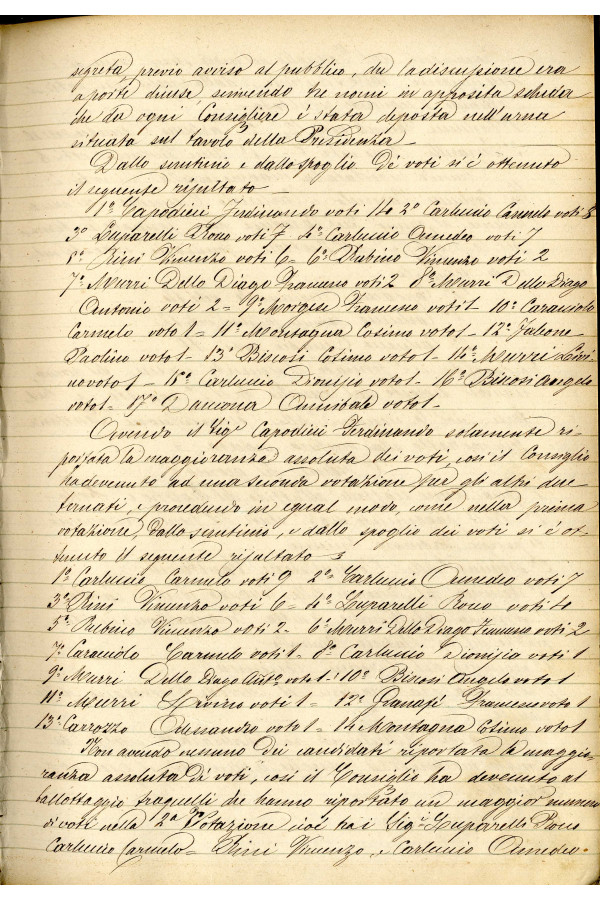 segreta, previo avviso al pubblico, che la discussione era
a porte chiuse, scrivendo tre nomi in apposita scheda
che da ogni Consigliere è stata deposta nell'urna
situata sul tavolo della Presidenza_
Dallo scrutinio e dallo spoglio de' voti si è ottenuto
il seguente risultato_
1º Capodieci Ferdinando voti 14 2º Carluccio Carmelo voti 8
3º Luparelli Rono voti 7 4º Carluccio Amedeo voti 7
5º Rini Vincenzo voti 6 = 6º Rubino Vincenzo voti 2
7º Murri Dello Diago Francesco voti 2 8º Murri Dello Diago
Antonio voti 2 = 9º Morgese Francesco voti 1 10º Caracciolo
Carmelo voto 1 = 11º Montagna Cosimo voto 1 - 12º Falcone
Paolino voto 1 - 13º Biscosi Cosimo voto 1 - 14º Murri Livi
no voto 1 _ 15º Carluccio Dionisio voto 1 - 16º Biscosi Angelo
voto 1 = 17º Dancona Annibale voto 1 -
Avendo il Sigr Capodieci Ferdinando solamente ri-
portata la maggioranza assoluta dei voti, così il Consiglio
ha devenuto ad una seconda votazione per gli altri due
ternati, e procedendo in egual modo, come nella prima
votazione, dallo scrutinio, e dallo spoglio dei voti si è ot-
tenuto il seguente risultato
1º Carluccio Carmelo voti 9 2º Carluccio Amedeo voti 7
3º Rini Vincenzo voti 6 = 4º Luparelli Rono voti 4
5º Rubino Vincenzo voti 2 - 6º Murri Dello Diago Francesco voti 2
7º Caracciolo Carmelo voti 1 - 8º Carluccio Dionisio voti 1
9º Murri Dello Diago Antº voto 1 - 10º Biscosi Angelo voto 1
11º Murri Livino voti 1 - 12º Francesco voto 1
13º Carrozzo Alessandro voto 1 - 14 Montagna Cosimo voto 1
Non avendo nessuno dei candidati riportata la maggio-
ranza assoluta di voti, così il Consiglio ha devenuto al
ballottaggio fra quelli che hanno riportato un maggior numero
di voti nella 2ª Votazione cioè fra i Sigi Luparelli Rono
Carluccio Carmelo = Rini Vincenzo, e Carluccio Amedeo.